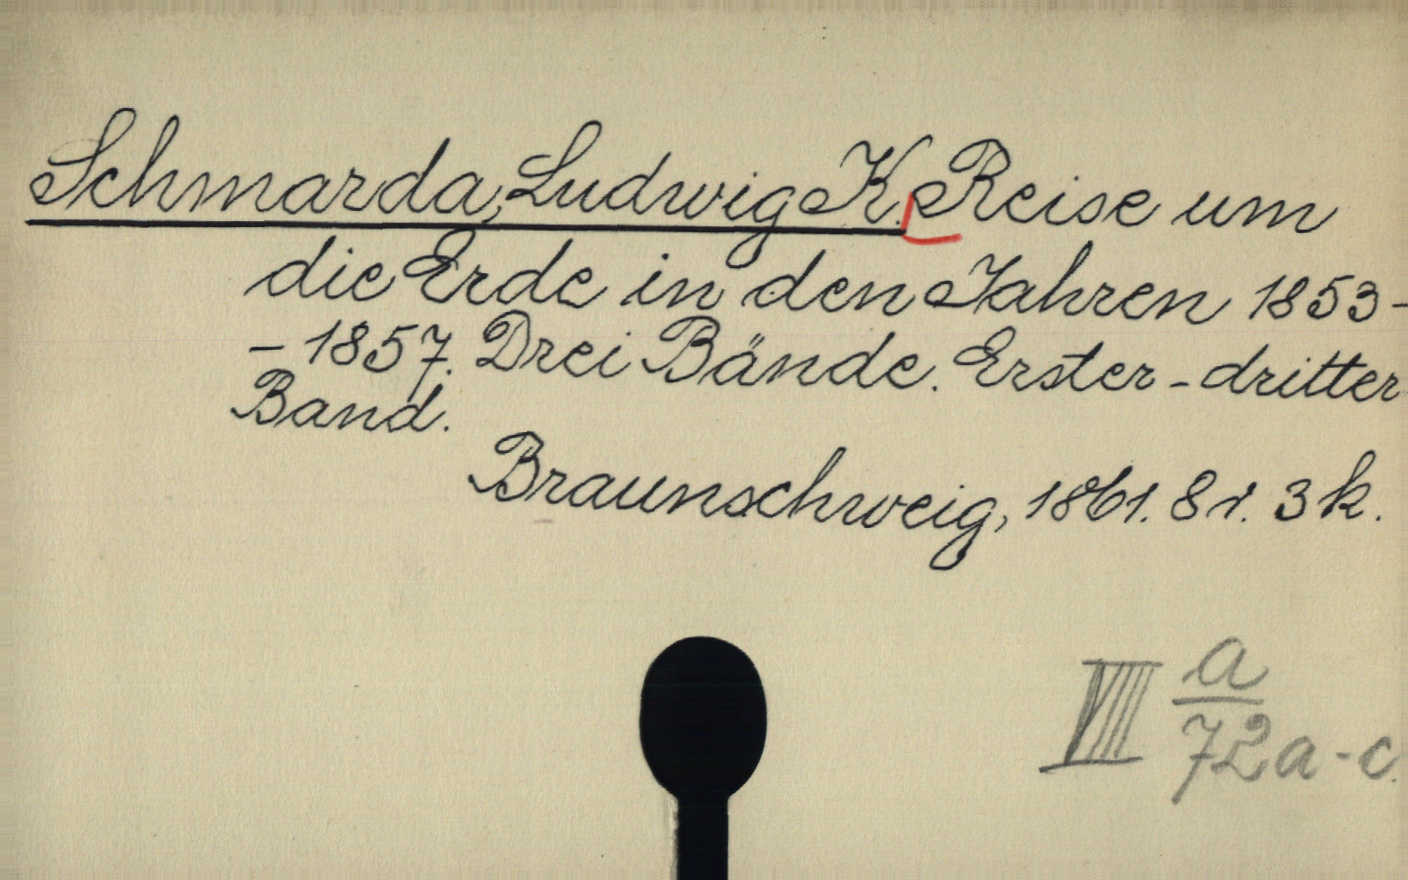 Schmarda, Ludwig K. Reise um
die Erde in den Jahren 1853-
- 1857. Drei Bände. Erster - dritter
Band.
Braunschweig, 1861. 8 r. 3 k.
VIII a/72a-c.